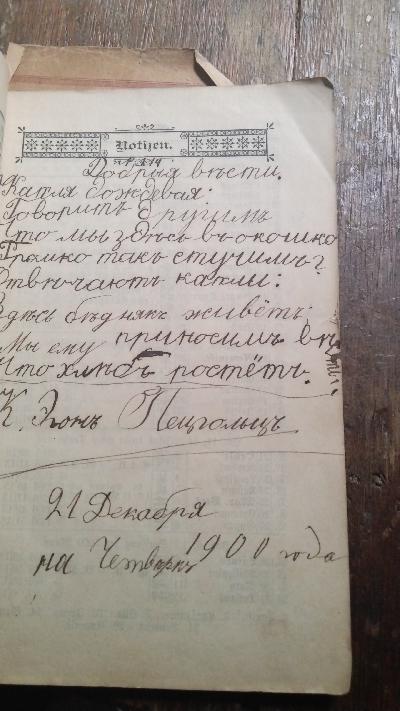 Notizen.
Добрыя вѣсти.
Капля дождевая:
Говоритъ другимъ
Что мы здѣсь въ окошко
Громко такъ стучимъ?
Отвѣчаютъ капли:
Здѣсь бѣднякъ живётъ;
Мы ему приносимъ вѣсть
Что хлѣбъ ростётъ.
К. Эгонъ
21 Декабря
на Четвергъ 1900 года